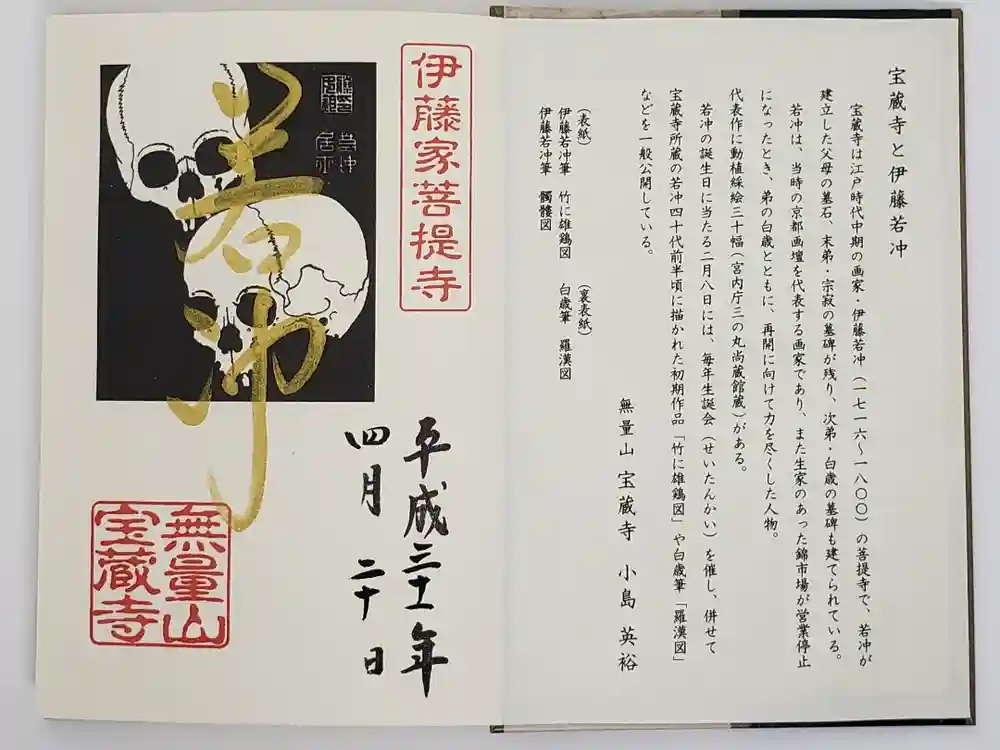 宝蔵寺と伊藤若冲
宝蔵寺は江戸時代中期の画家・伊藤若冲（一七一六～一八〇〇）の菩提寺で、若冲が
建立した父母の墓石、末弟・宗寂の墓碑が残り、次弟・白歳の墓碑も建てられている。
若冲は、当時の京都画壇を代表する画家であり、また生家のあった錦市場が営業停止
になったとき、弟の白歳とともに、再開に向けて力を尽くした人物。
代表作に動植綵絵三十幅（宮内庁三の丸尚蔵館蔵）がある。
若冲の誕生日に当たる二月八日には、毎年生誕会（せいたんかい）を催し、併せて
宝蔵寺所蔵の若冲四十代前半頃に描かれた初期作品「竹に雄鶏図」や白歳筆「羅漢図」
などを一般公開している。
無量山 宝蔵寺 小島 英裕
（表紙）
伊藤若冲筆 竹に雄鶏図
伊藤若冲筆 髑髏図
（裏表紙）
白歳筆 羅漢図
伊藤家菩提寺
平成三十一年
四月 二十日
若冲
若冲
居士
無量山
宝蔵寺